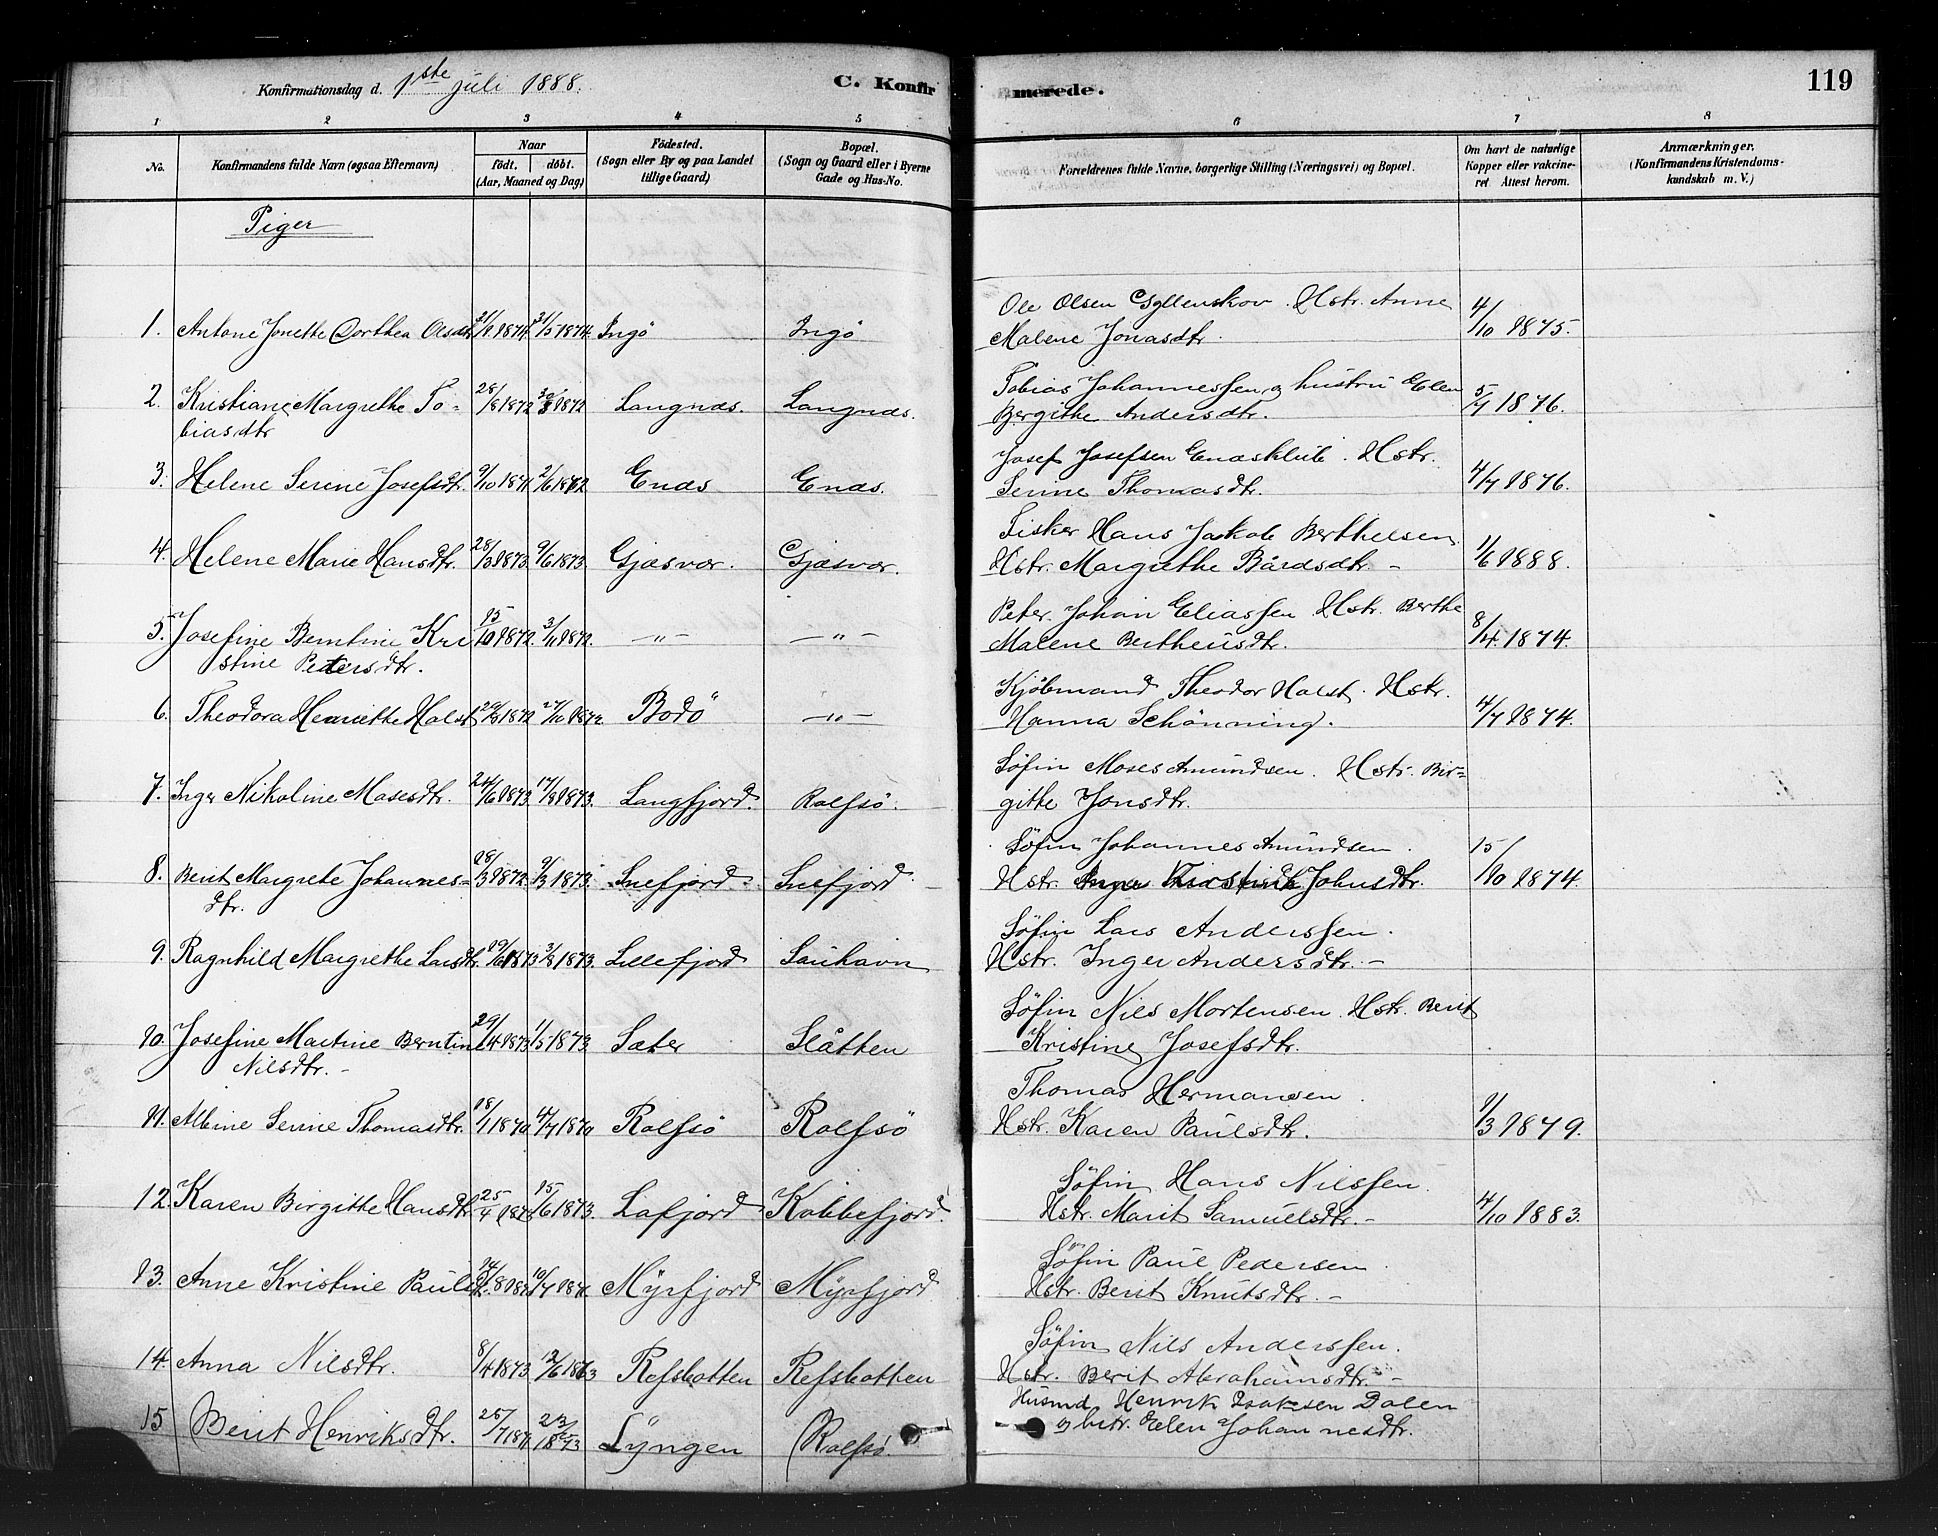 Konfirmationsdag d. 1ste Juli 1888.
C. Konfirmerede.
119
1 2 3 4 5 6 7 8
No.
Konfirmandens fulde Navn (ogsaa Efternavn)
Naar
födt. döbt.
(Aar, Maaned og Dag)
Födested.
(Sogn eller By og paa Landet
tillige Gaard)
Bopæl.
(Sogn og Gaard eller i Byerne
Gade og Hus-No.
Forældrenes fulde Navne, borgerlige Stilling (Næringsvei) og Bopæl.
Om havt de naturlige
Kopper eller vakcine-
ret Attest herom.
Anmærkninger.
(Konfirmandens Kristendoms-
kundskab m. V.)
Piger
Ole Olsen Gyllenskov. Hstr. Anne
1. Antone Jonette Dorthea Olsdtr. Ingö Ingö Malene Jonasdtr. 4/10 1875.
Tobias Johannessen og hustru Elen
2. Kristiane Margrethe To- 28/8 1872 Langnæs. Langnæs. Bergithe Andersdtr. 5/7 1876.
biasdtr
Josef Josefsen Hstr.
3. Helene Serine Josefsdtr. 9/10 1871. 2/6 1872 Enæs Enæs. Serine Thomasdtr. 4/7 1876.
Fisker Hans Jakob Berthelsen
4. Helene Marie Hansdtr. 28/3 1873. 9/6 1873. Gjæsvær. Gjæsvær. Hstr. Margrethe Bårdsdtr. - 1/6 1888.
Peter Johan Eliassen Hstr. Berthe
5. Josefine Berntine Kri 15/10 1872. 3/11 1872. -"- -"- Malene Bertheusdtr. 8/4 1874.
stine Petersdtr.
Kjöbmand Theodor Holst. Hstr.
6. Theodora Henriette Holst 27/10 1872. Bodö -"- Hanna Schönning. 4/7 1874.
Söfin Moses Amundsen. Hstr. Bir-
7. Inger Nikoline Mosesdtr. 24/6 1873. 17/8 1873. Langfjord. Rolfsö. gitte Jonsdtr.
Söfin Johannes Amundsen. 15
8. Berit Margrete Johannes- 18/3 1872. 9/3 1873. Snefjord. Snefjord Hstr. Johnsdtr. /10 1874.
dtr.
Söfin Lars Anderssen.
9. Ragnhild Margrethe Larsdtr. 19/6 1873 3/8 1873. Lillefjord Sauhavn Hstr. Inger Andersdtr. -
Söfin Nils Mortensen. Hstr. Berit
10. Josefine Martine Berntine 29/4 1873 1/5 1873. Sæter Slåtten Kristine Josefsdtr.
Nilsdtr. -
Thomas Hermansen.
11. Albine Serine Thomasdtr. 18/1 1870 4/7 1870 Rolfsö Rolfsö Hstr. Karen Paulsdtr. 1/3 1879.
Söfin Hans Nilssen.
12. Karen Birgitte Hansdtr. 25/4 1873 15/6 1873. Lafjord Kobbefjord. Hstr. Marit Samuelsdtr. - 4/10 1883.
Söfin Paul Pedersen
13. Anne Kristine Paulsdtr. Myrfjord Myrfjord Hstr. Berit Knutsdtr. -
Söfin Nils Anderssen.
14. Anna Nilsdtr. 8/4 1873 Refsbotten Refsbotten Hstr. Berit Abrahamsdtr. -
Husmd Henrik Isaksen Dalen
15 Berit Henriksdtr. 25/7 Lyngen Rolfsö. og hstr. Elen Johannesdtr.